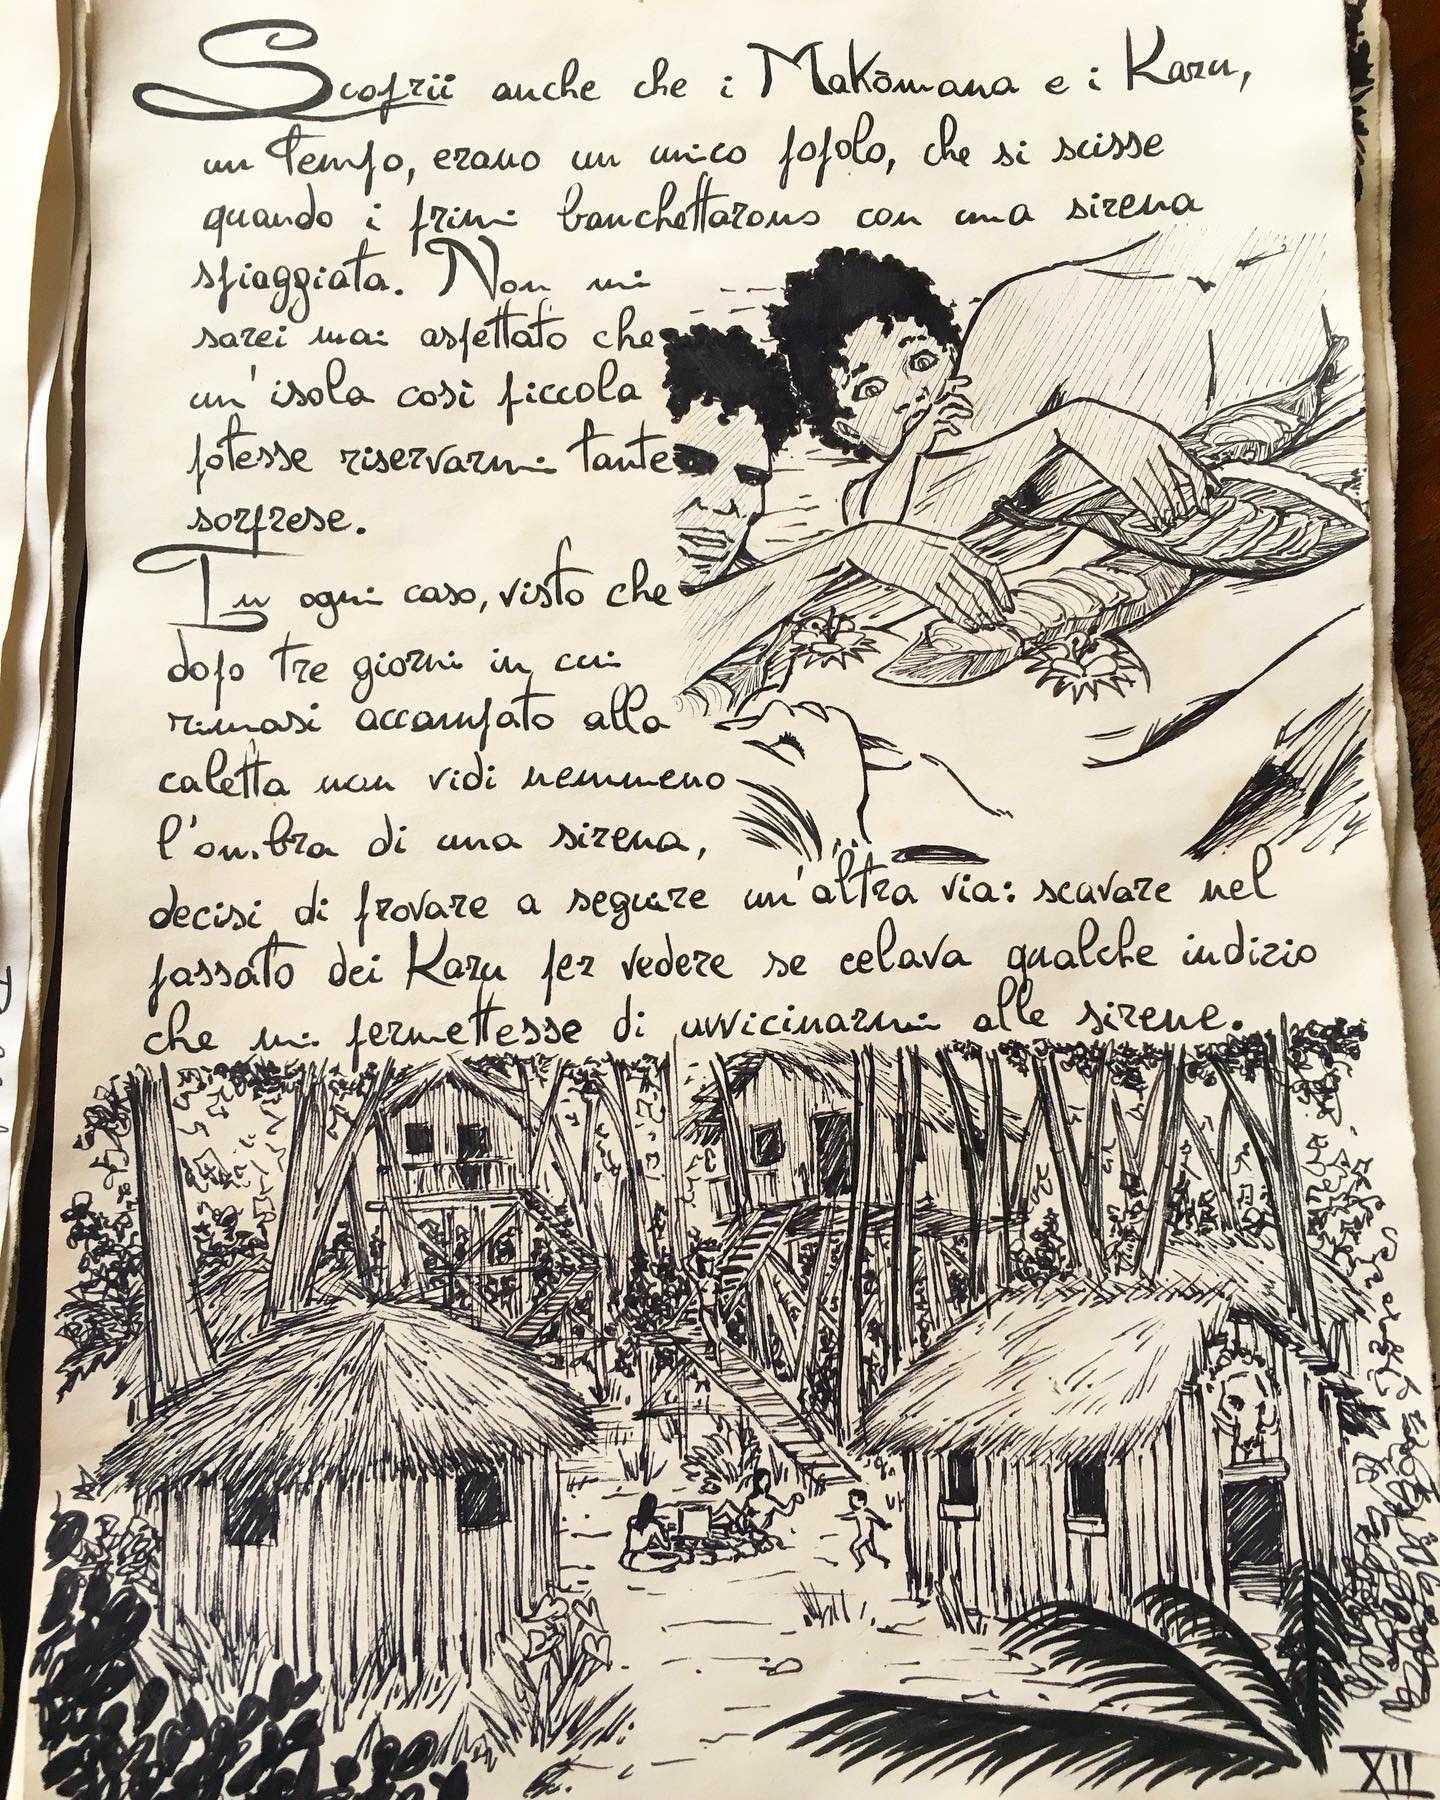 Scoprii anche che i Makōmana e i Karu,
un tempo, erano un unico popolo, che si scisse
quando i primi banchettarono con una sirena
spiaggiata. Non mi
sarei mai aspettato che
un'isola così piccola
potesse riservarmi tante
sorprese.
In ogni caso, visto che
dopo tre giorni in cui
rimasi accampato alla
caletta non vidi nemmeno
l'ombra di una sirena,
decisi di provare a seguire un'altra via: scavare nel
passato dei Karu per vedere se celava qualche indizio
che mi permettesse di avvicinarmi alle sirene.
XII